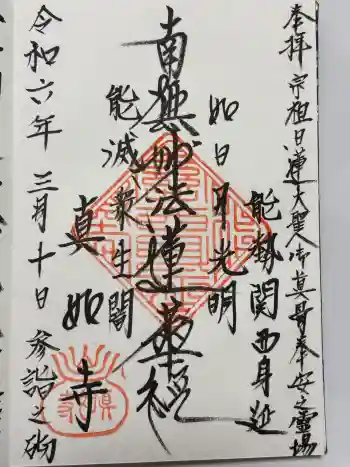 奉拝 宗祖日蓮大聖人御真骨奉安之霊場
能勢 関西身延
如日月光明
南無妙法蓮華経
能滅衆生闇
真如寺
令和六年 三月十日 参詣之砌